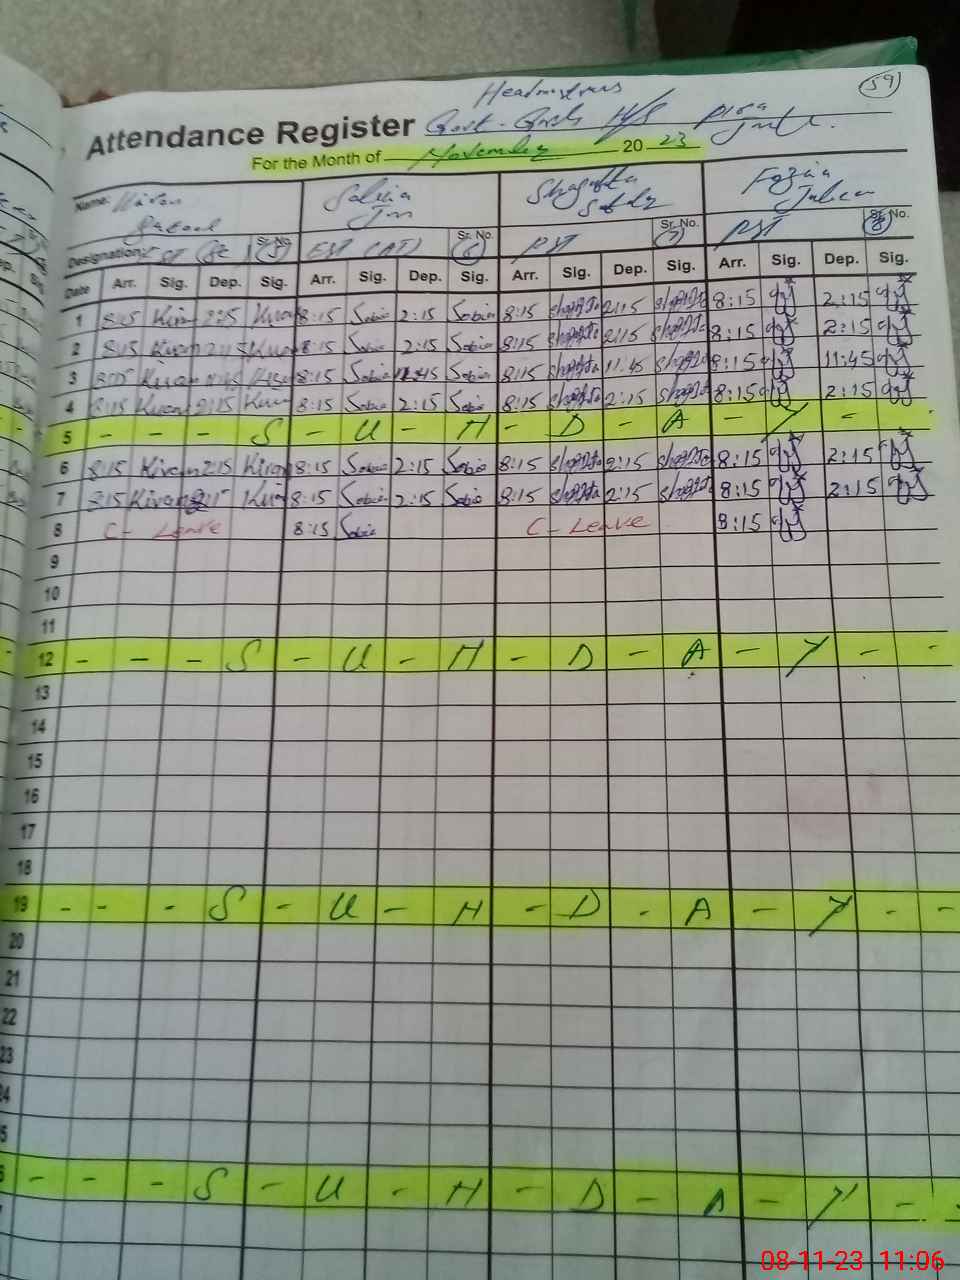 59
Headmistress
Attendance Register Govt. Girls H/S
For the Month of November 20 23
Name: Kiran Sobia Shagufta Fozia
Designation: EST (AT) Sr. No. 6 PST Sr. No. 7 PST Sr. No. 8
Date Arr. Sig. Dep. Sig. Arr. Sig. Dep. Sig. Arr. Sig. Dep. Sig. Arr. Sig. Dep. Sig.
1 8:15 Kiran 2:15 Kiran 8:15 Sobia 2:15 Sobia 8:15 Shagufta 2:15 Shagufta 8:15 2:15
2 8:15 Kiran 2:15 Kiran 8:15 Sobia 2:15 Sobia 8:15 Shagufta 2:15 Shagufta 8:15 2:15
3 Kiran 8:15 Sobia 11:45 Sobia 8:15 Shagufta 11:45 Shagufta 8:15 11:45
4 8:15 Kiran 2:15 Kiran 8:15 Sobia 2:15 Sobia 8:15 Shagufta 2:15 Shagufta 8:15 2:15
5 - - - S - U - N - D - A - Y -
6 8:15 Kiran 2:15 Kiran 8:15 Sobia 2:15 Sobia 8:15 Shagufta 2:15 Shagufta 8:15 2:15
7 8:15 Kiran Kiran 8:15 Sobia 2:15 Sobia 8:15 Shagufta 2:15 Shagufta 8:15 2:15
8 C- Leave 8:15 Sobia C- Leave 8:15
9
10
11
12 - - - S - U - N - D - A - Y - -
13
14
15
16
17
18
19 - - - S - U - N - D - A - Y - -
20
21
22
23
24
- - - S - U - N - D - A - Y - -
08-11-23 11:06